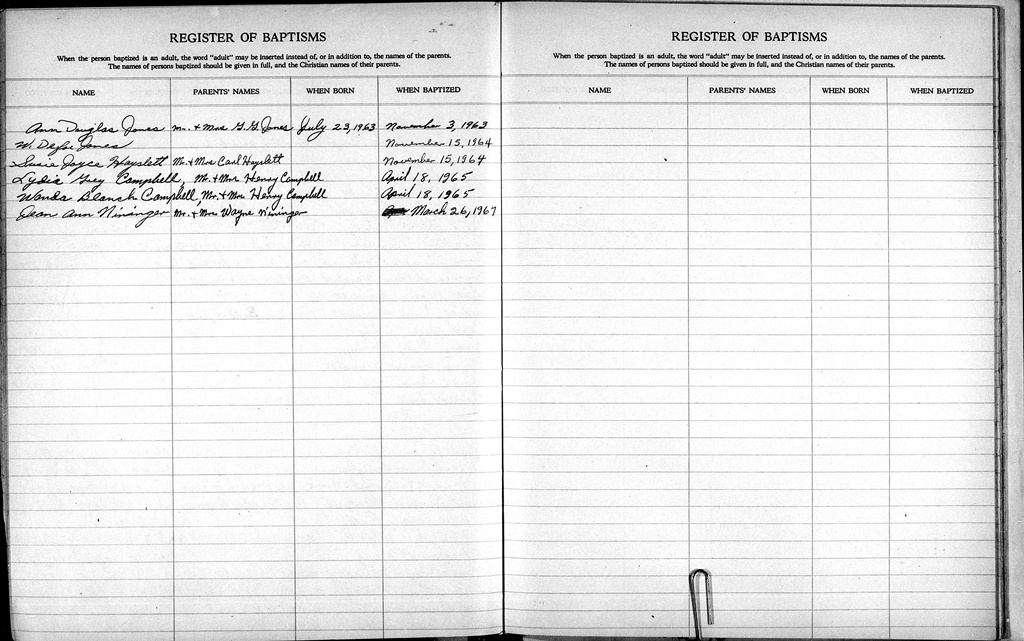 REGISTER OF BAPTISMS
When the person baptized is an adult, the word "adult" may be inserted instead of, or in addition to, the names of the parents.
The names of persons baptized should be given in full, and the Christian names of their parents.
NAME PARENTS' NAMES WHEN BORN WHEN BAPTIZED
Ann Douglas Jones Mr. + Mrs G.G. Jones July 23, 1963 November 3, 1963
W. Defoe Jones November 15, 1964
Susie Joyce Hayslett Mr. + Mrs Carl Hayslett November 15, 1964
Lydia Grey Campbell, Mr. + Mrs. Henry Campbell April 18, 1965
Wanda Blanch Campbell, Mr. + Mrs Henry Campbell April 18, 1965
Jean Ann Nininger Mr. + Mrs Wayne Nininger March 26, 1967
REGISTER OF BAPTISMS
When the person baptized is an adult, the word "adult" may be inserted instead of, or in addition to, the names of the parents.
The names of persons baptized should be given in full, and the Christian names of their parents.
NAME PARENTS' NAMES WHEN BORN WHEN BAPTIZED